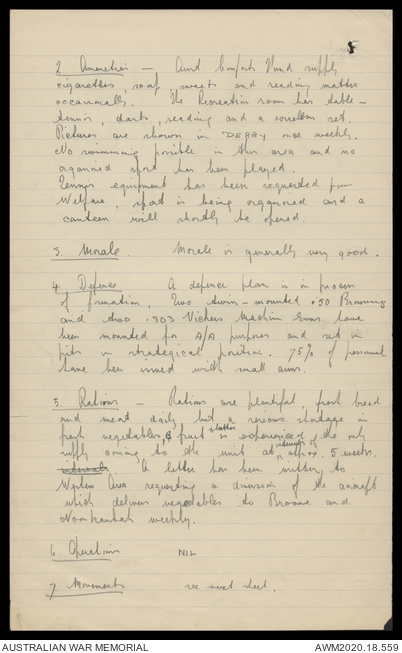 2. Amenities — Aust Comforts Fund supply
cigarettes, soap, sweets and reading matter
occasionally. The Recreation room has table-
tennis, darts, reading and a wireless set.
Pictures are shown in DERBY once weekly.
No swimming possible in this area and no
organised sport has been played.
Tennis equipment has been requested from
Welfare, sport is being organised and a
canteen will shortly be opened.
3. Morale. Morale is generally very good.
4. Defence A defence plan is in process
of formation, Two twin-mounted .50 Brownings
and two .303 Vickers Machine Guns have
been mounted for A/A purposes and set in
pits in strategical position. 75% of personnel
have been issued with small arms.
5. Rations — Rations are plentiful, fresh bread
and meat daily but a serious shortage in
fresh vegetables & fruit is experienced the only
supply coming to the unit at intervals of approx. 5 weeks.
intervals A letter has been written to
Western Area requesting a diversion of the aircraft
which delivers vegetables to Broome and
Noonkanbah weekly.
6. Operations NIL
7. Movements see next sheet.
AUSTRALIAN WAR MEMORIAL
AWM2020.18.559